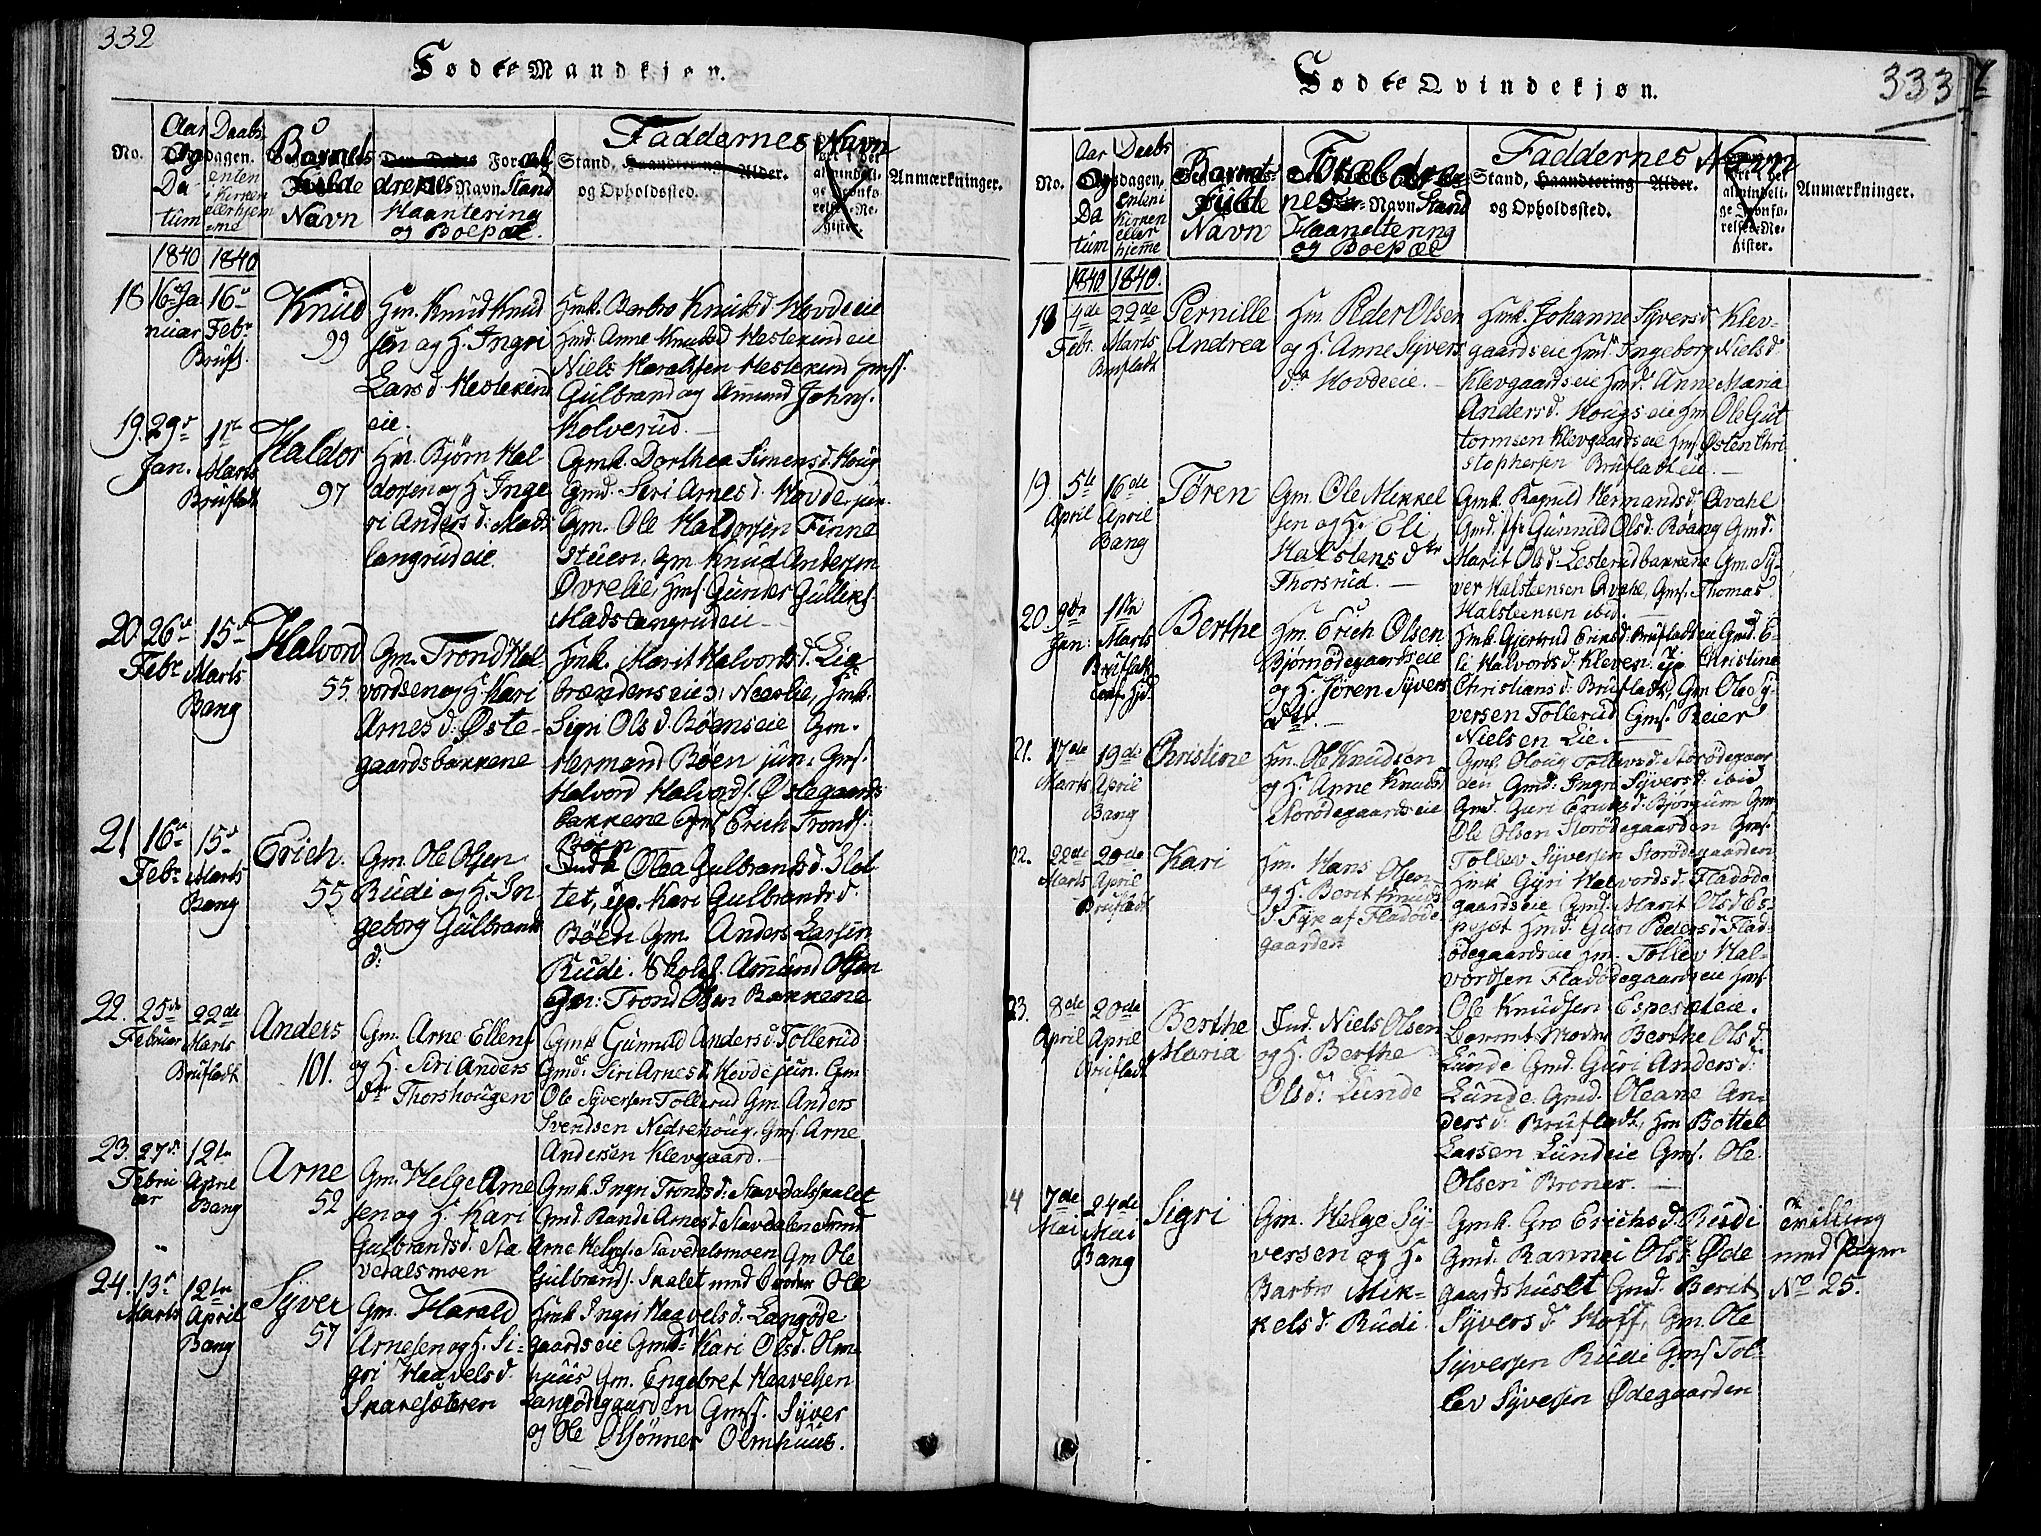 332
Fødte Mandkjøn.
No.
Aar og Datum
Daabsdagen, enten i Kirken eller hjemme
Barnets fulde Navn
Forældrenes Navn Stand Haantering og Boepæl.
Faddernes Navn
Stand, og Opholdssted.
Anmærkninger.
1840 1840
18 16de Januar 16de Febr Brufl.
Knud
99
Hm. Knud Knud
sen og H. Ingri
Lars d. Hestekind
eie.
Hmk. Barbro Knuts d. Hovdeeie
Hmd. Anne Knuds d Hestekind eie
Niels Haraldsen Hestekind Hmss.
Gulbrand og Amund Johns.
Kolverud.
19. 29de Jan. 1ste Marts Brufladt
Haldor
97
Hm. Bjørn Hal
dorsen og H. Inge
ri Anders d: Mads
langrudeie.
Gmk. Dorthea Simens d. Houg
Gmd. Siri Arnes d. Hovde jun
Gm. Ole Haldorsen Finne
stuen, Gm Knud Andersen
Øvrelie, Hms. Gunder Gulliks.
Madslangrudeie
20. 26de Febr 15de Marts Bang
Halvord
55
Gm. Trond Hal-
vordsen og H. Kari
Arnes d: Øste-
gaardsbakkene
Hmk. Marit Halvords d. Lie
brændenseie ɔ: Neeslie, Hmk.
Sigri Ols d. Bøenseie Gm.
Hermand Bøen jun. Gms.
Halvord Halvords. Østegaards
bakkene Gms Erich Tronds.
Bøen
21 16de Febr 15de Marts Bang
Erich.
55
Gm. Ole Olsen
Rudi og H. In
geborg Gulbrands
d:
Indk Olea Gulbrands d. Slot
tet, ip. Kari Gulbrands d.
Bøen Gm. Anders Larsen
Rudi. Skoles. Amund Olsen
Gm: Trond Olsen Bakkene
22. 25de Februar 22de Marts Brufladt
Anders
101.
Gm. Arne Ellens
og H. Siri Anders
dr Thorshougen
Gmk Gunnild Anders d. Tollerud
Gmd: Siri Arnes d. Hovde jun. Gm
Ole Syversen Tollerud Gm. Anders
Svendsen Nedrehoug. Gms Arne
Andersen Klevgaard.
23. 27de Februar 12te April Bang
Arne
52
Gm. Helge Arne
sen og H. Kari
Gulbrands d. Sta
vedalsmoen
Gmk. Ingri Tronds d: Stavedalskalet
Gmd. Rande Arnes d. Stavedalen
Arne Helges. Stavedalsmoen Gm Ole
Gulbrands. Skalet med broder Ole
24. 13de Marts 12te April Bang
Syver
57
Gm. Harald
Arnesen og H. Si-
gri Haavels d.
Skaresæteren
Hmk Ingri Haavels d. Langøde
gaardseie Gmd: Kari Ols d. Olm-
huus Gm. Engebret Haavelsen
Langødegaarden Gms. Syver
og Ole Olsønner Olmhuus.
333
Fødte Qvindekjøn.
No.
Aar og Datum
Daabsdagen, enten i Kirken eller hjemme
Barnets fulde Navn
Forældrenes Navn Stand Haandtering og Boepæl
Faddernes Navn
Stand, og Opholdssted.
Anmærkninger.
1840 1840.
18 4de Febr. 22de Marts Brufladt
Pernille
Andrea
Hm. Peder Olsen
og H. Anne Syvers
dr Hovdeeie.
Hmk. Johanne Syvers d Klev-
gaardseie Hmd. Ingeborg Niels d.
Klevgaardseie Hmd. Anne Maria
Anders d. Hougseie Hm. Ole Gut
tormsen Klevgaardseie Hms Østen Chri
stophersen Brufladteie.
19. 5te April 16de April Bang
Tøren
Gm. Ole Mikkel
sen og H. Eli
Halstens dtr
Thorsrud.
Gmk. Ragnild Hermands d. Qvahl
Gmd. Gunnild Ols d. Røang Gmd.
Marit Ols d. Lesterudbakkene Gm. Sy-
ver Halstensen Qvahl, Gms. Thomas
Halsteensen ibid.
20. 9de Jan: 1ste Marts Brufladt
Berthe
Hm. Erich Olsen
Bjørnødegaardseie
og H. Jøren Syvers
dtr.
Hmk. Gjertrud Eriks d. Brufladteie Gmd: E-
li Halvords d. Kleven. ip Christine
Christians d. Brufladt, Gm Ole Sy-
versen Tollerud Gms. Reier
Nielsen Lie.
21. 17de Marts 19de April Bang
Christine
Hm. Ole Knudsen
og H. Anne Knuds d
Storødegaardseie
Gmk. Oloug Tollevs d. Storødegaar
den Gmd. Ingri Syvers d. ibid
Gmd. Guri Eriks d. Bjørgum Gm.
Ole Olsen Storødegaarden Gms.
Tollev Syversen Storødegaarden
22. 22de Marts 20de April Brufladt
Kari
Hm. Hans Olsen
og H. Berit Knuds
d. Fyx af Fladøde
gaarden
Hmk Guri Halvords d. Fladøde
gaardseie Gmd. Marit Ols d Es-
peset Hmd. Guri Peders d. Flad-
ødegaardseie Hm. Tollev Hal-
vordsen Fladødegaardseie Hms
Ole Knudsen Espeseteie.
23. 8de April 20de April Brufladt
Berthe
Maria
Ind. Niels Olsen
og H. Berthe
Ols d: Lunde
Barnets Moder Berthe Ols d.
Lunde Gmd. Guri Anders d:
Lunde Gmd. Oleane An-
ders d. Brufladt, Hm Bottel
Larsen Lundeie Gms. Ole
Olsen Broner.
24 7de Mai 24de Mai Bang
Sigri
Gm. Helge Sy-
versen og H.
Barbro Mik-
kels d: Rudi
Gmk. Gro Erichs d. Rudi
Gmd: Rannei Ols d. Øde
gaardshuslt Gmd. Berit
Syvers d Hoff, Gm. Ole
Syversen Rudi Gms Tol-
lev Syversen Ødegaarden
Er tvilling
med Pigen
No 25.